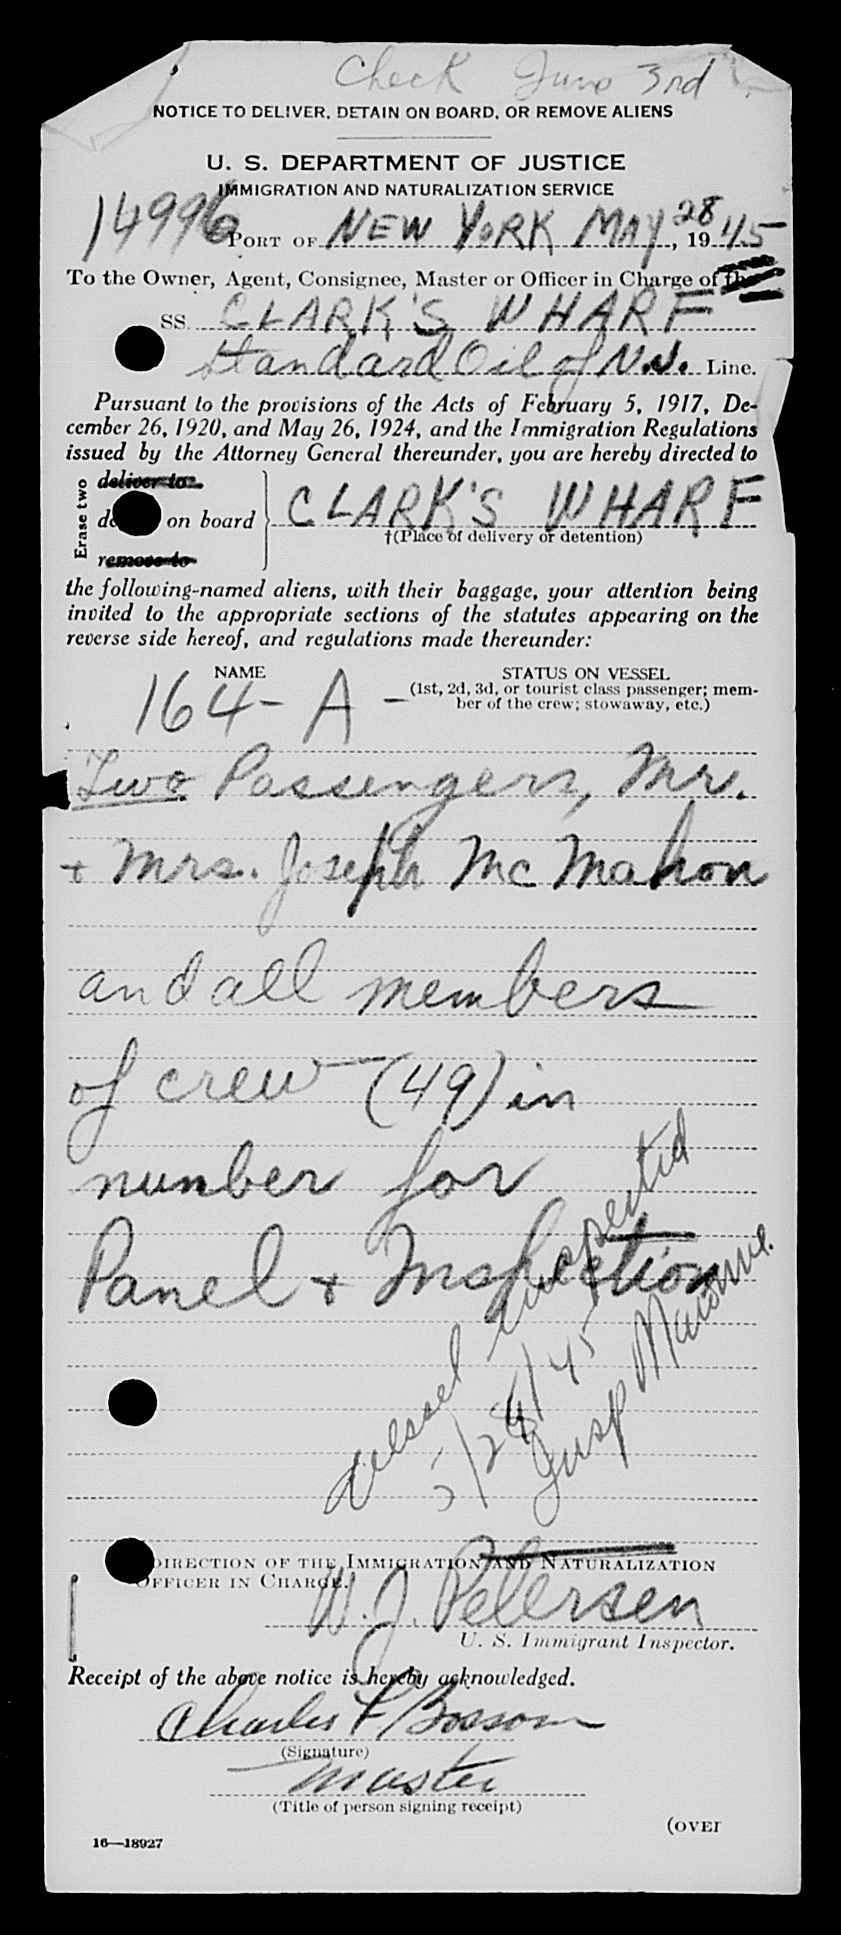 Check June 3rd
NOTICE TO DELIVER, DETAIN ON BOARD, OR REMOVE ALIENS
U. S. DEPARTMENT OF JUSTICE
IMMIGRATION AND NATURALIZATION SERVICE
14996
PORT OF NEW YORK MAY 28, 1945
To the Owner, Agent, Consignee, Master or Officer in Charge of the
SS. CLARK'S WHARF
Standard Oil of N.J. Line.
Pursuant to the provisions of the Acts of February 5, 1917, De-
cember 26, 1920, and May 26, 1924, and the Immigration Regulations
issued by the Attorney General thereunder, you are hereby directed to
Erase two
deliver to
de on board CLARK'S WHARF
†(Place of delivery or detention)
remove to
the following-named aliens, with their baggage, your attention being
invited to the appropriate sections of the statutes appearing on the
reverse side hereof, and regulations made thereunder:
NAME STATUS ON VESSEL
(1st, 2d, 3d, or tourist class passenger; mem-
ber of the crew; stowaway, etc.)
164-A-
Two Passengers, Mr.
+ Mrs. Joseph McMahon
and all members
of crew (49) in
number for
Panel + Inspection
Vessel inspected
5/28/45
Insp
DIRECTION OF THE IMMIGRATION AND NATURALIZATION
OFFICER IN CHARGE.
W. J. Petersen
U. S. Immigrant Inspector.
Receipt of the above notice is hereby acknowledged.
Charles F Bossom
(Signature)
Master
(Title of person signing receipt)
(OVER
16—18927